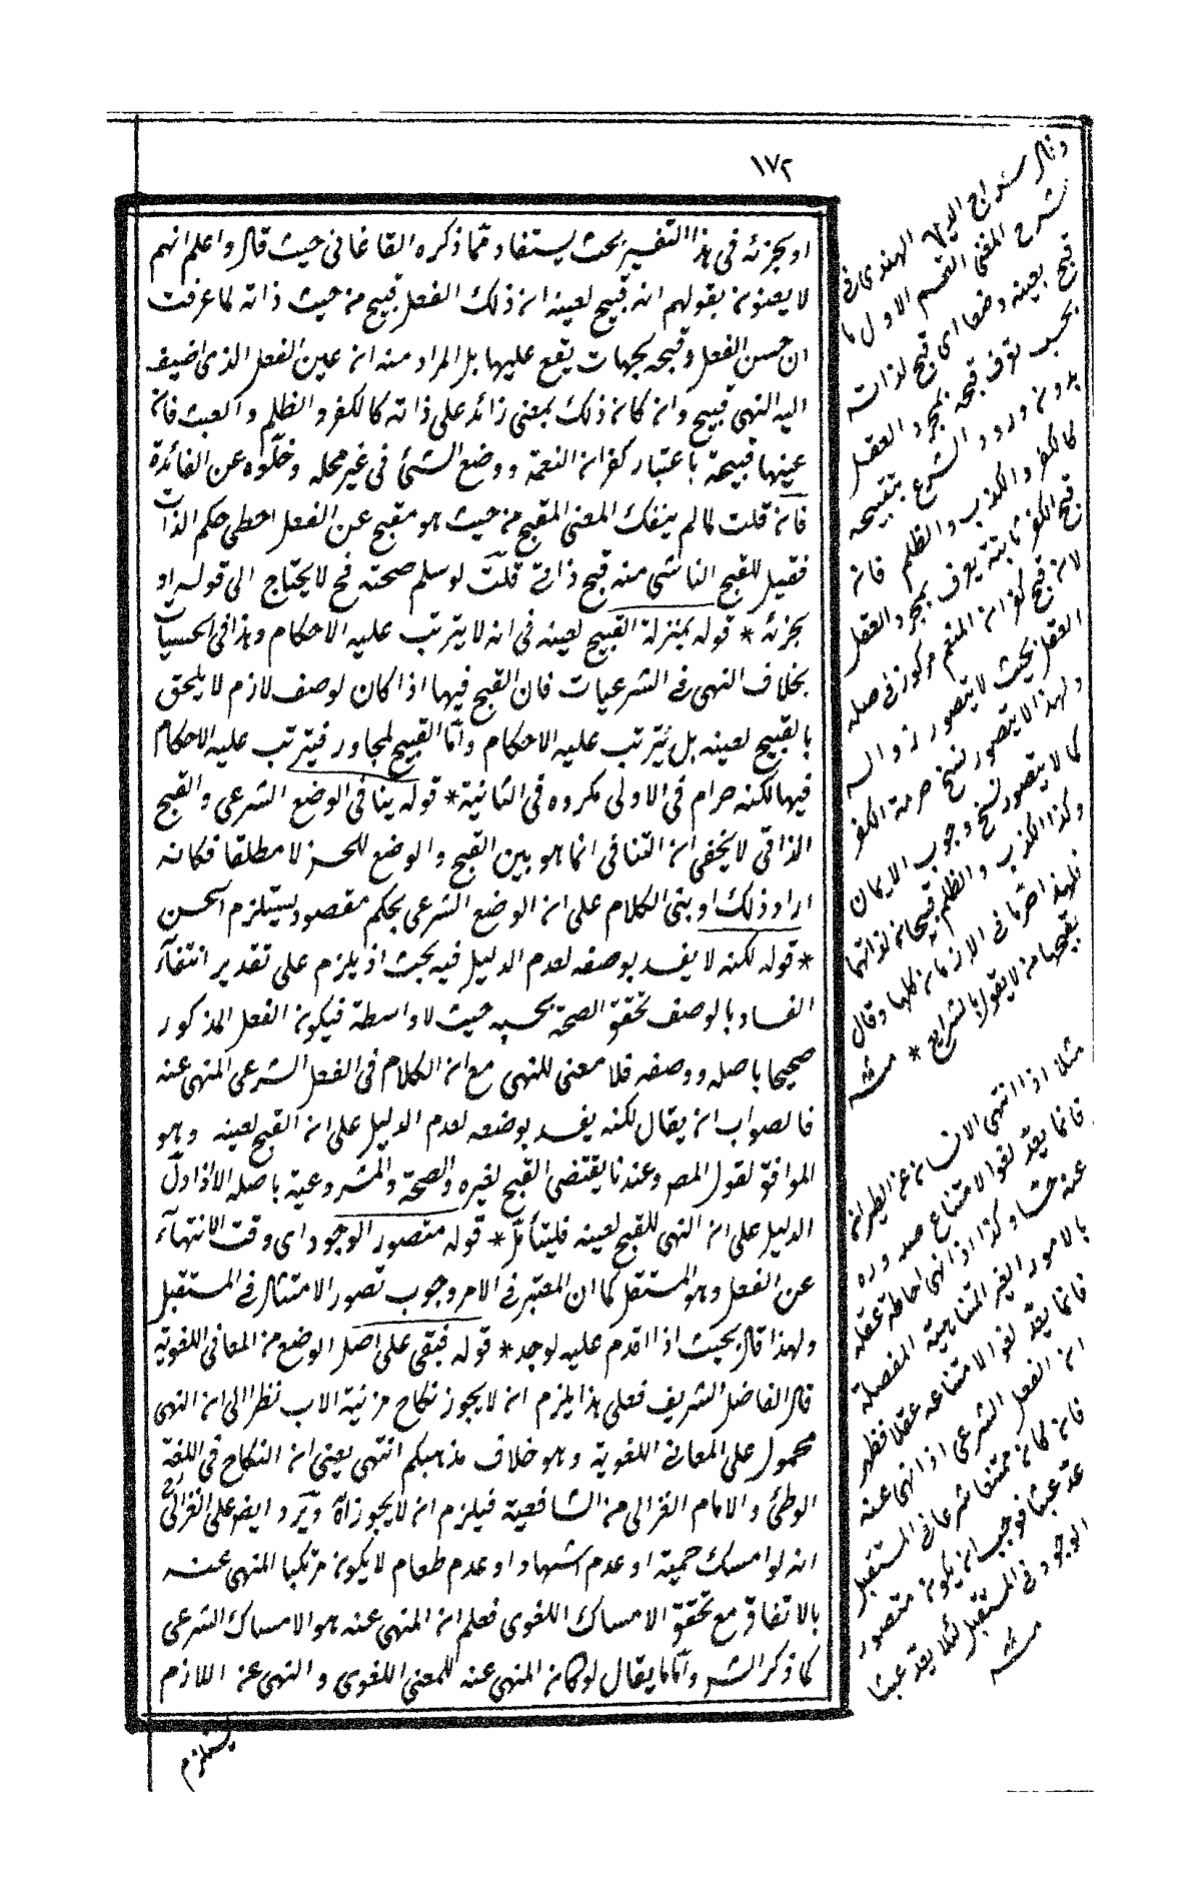 ١٧٢
او بجزئه فى هذا التفسير بحث يستفاد مما ذكره القاغانى حيث قال واعلم انهم
لا يعنون بقولهم انه قبيح لعينه ان ذلك الفعل قبيح من حيث ذاته لما عرفت
ان حسن الفعل وقبحه بجهات يقع عليها بل المراد منه ان عين الفعل الذى اضيف
اليه النهى قبيح وان كان ذلك بمعنى زائد على ذاته كالكفر والظلم والعبث فان
عينها قبيحة باعتبار كفران النعمة ووضع الشئ فى غير محله وخلوه عن الفائدة
فان قلت لما لم ينفك المعنى المقبح من حيث هو مقبح عن الفعل اعطى حكم الذات
فقيل للقبح الناشى منه قبح ذاتى قلت لو سلم صحته فح لا يحتاج الى قوله او
بجزئه * قوله بمنزلة القبيح لعينه فى انه لا يترتب عليه الاحكام وهذا فى الحسيات
بخلاف النهى فى الشرعيات فان القبح فيها اذا كان لوصف لازم لا يلحق
بالقبيح لعينه بل يترتب عليه الاحكام واما القبيح لمجاور فيترتب عليه الاحكام
فيها لكنه حرام فى الاولى مكروه فى الثانية * قوله ينافى الوضع الشرعى والقبح
الذاتى لا يخفى ان التنافى انما هو بين القبح والوضع للحسن لا مطلقا فكانه
اراد ذلك او بنى الكلام على ان الوضع الشرعى بحكم مقصود يستلزم الحسن
* قوله لكنه لا يفسد بوصفه لعدم الدليل فيه بحث اذ يلزم على تقدير انتفاء
الفساد بالوصف تحقق الصحة بحسبه حيث لا واسطة فيكون الفعل المذكور
صحيحا باصله ووصفه فلا معنى للنهى مع ان الكلام فى الفعل الشرعى المنهى عنه
فالصواب ان يقال لكنه يفسد بوضعه لعدم الدليل على ان القبح لعينه وهو
الموافق لقول المصـ وعندنا يقتضى القبح لغيره والصحة والمشروعية باصله الا اذا دل
الدليل على ان النهى للقبح لعينه فليتأمل * قوله متصور الوجود اى وقت الانتهاء
عن الفعل وهو المستقبل كما ان المعتبر فى الامر وجوب تصور الامتثال فى المستقبل
ولهذا قال بحيث اذا اقدم عليه لوجد * قوله فبقى على اصل الوضع من المعانى اللغوية
قال الفاضل الشريف فعلى هذا يلزم ان لا يجوز نكاح مزنية الاب نظرا الى ان النهى
محمول على المعانى اللغوية وهو خلاف مذهبكم انتهى يعنى ان النكاح فى اللغة
الوطئ والامام الغزالى من الشافعية فيلزم ان لا يجوز ويرد ايضـ على الغزالى
انه لو امسك حمية او عدم اشتهاء او عدم طعام لا يكون مرتكبا المنهى عنه
بالاتفاق مع تحقق الامساك اللغوى فعلم ان المنهى عنه هو الامساك الشرعى
كما ذكر الشـ واما ما يقال لو كان المنهى عنه للمعنى اللغوى والنهى عن اللازم
يستلزم
وقال سراج الدين الهندى فى
شرح المغنى القسم الاول ما
قبح بعينه وضعا اى قبح لذاته
بحسب تعرف قبحه بمجرد العقل
بدون ورود الشرع بتقبيحه
كالكفر والكذب والظلم فان
قبح الكفر ثابتة يعرف بمجرد العقل
لان قبح كفران المنعم مركوز فى صلة
العقل بحيث لا يتصور زواله
ولهذا لا يتصور نسخ حرمة الكفر
كما لا يتصور نسخ وجوب الايمان
وكذا الكذب والظلم قبيحان لذاتهما
فلهذا حرما فى الازمان كلها وقال
بقبحها من لا يقول بالشرايع * منه
مثلا اذا انتهى الانسان عن الطيران
فانما يعد لغوا لامتناع صدوره
عنه حسا وكذا اذا نهى احاطة عقله
بالامور الغير المتناهية المفصلة
فانما يعد لغوا لامتناعه عقلا فظهر
ان الفعل الشرعى اذا نهى عنه
فان كان ممتنعا شرعا فى المستقبل
عد عبثا فوجب ان يكون متصور
الوجود فى المستقبل لئلا يعد عبثا
منه